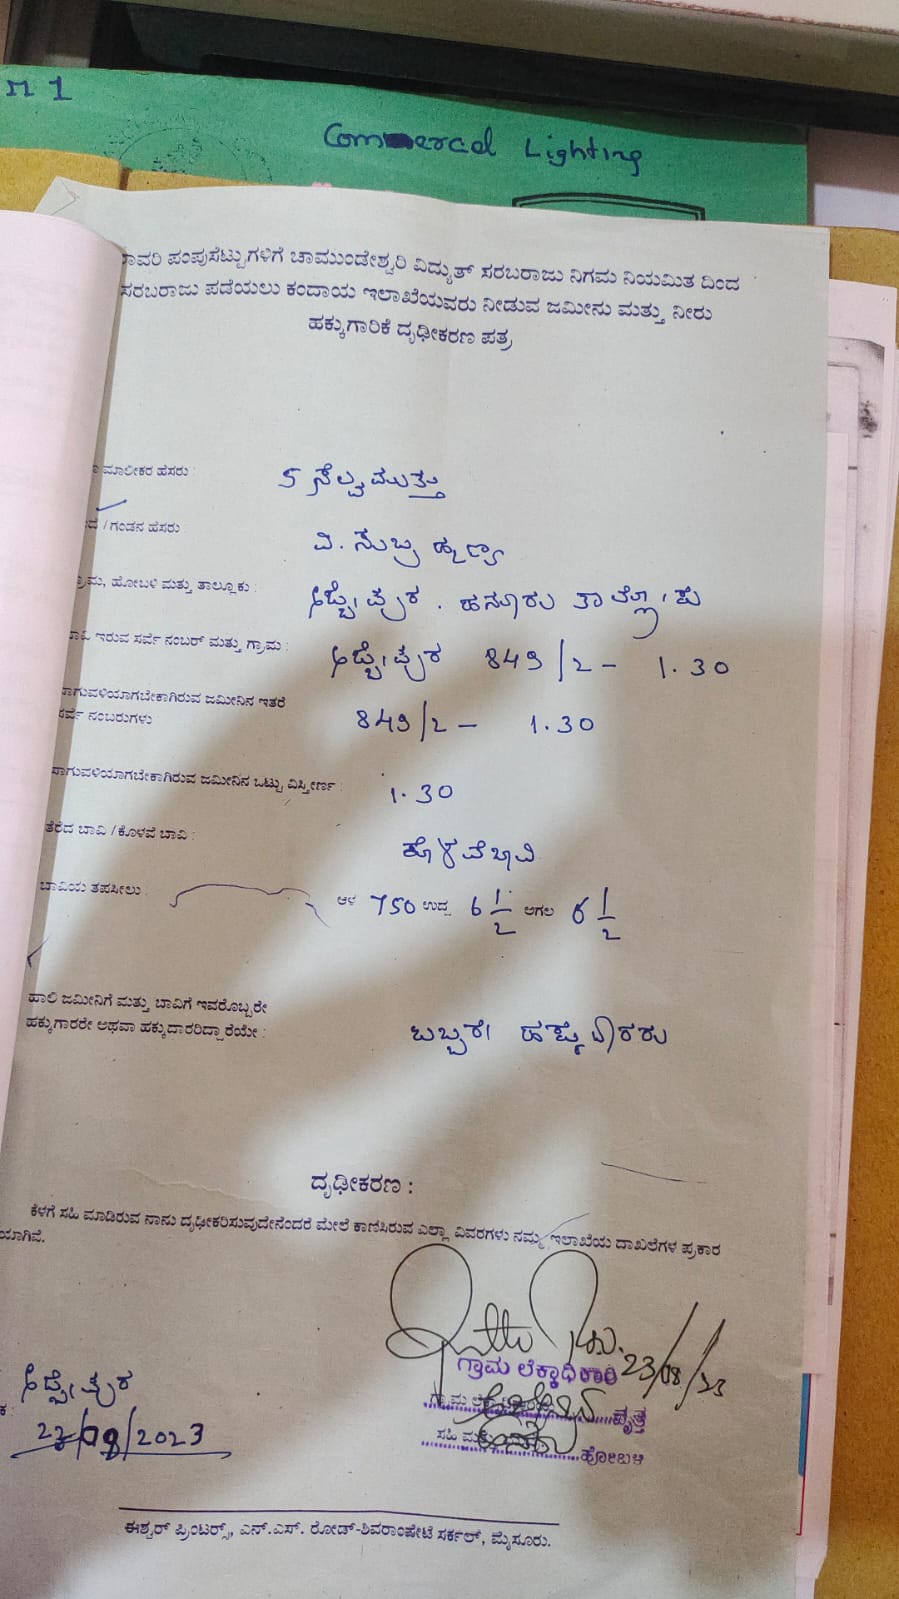 m 1
Commercial Lighting
ನೀರಾವರಿ ಪಂಪುಸೆಟ್ಟುಗಳಿಗೆ ಚಾಮುಂಡೇಶ್ವರಿ ವಿದ್ಯುತ್ ಸರಬರಾಜು ನಿಗಮ ನಿಯಮಿತ ದಿಂದ
ಸರಬರಾಜು ಪಡೆಯಲು ಕಂದಾಯ ಇಲಾಖೆಯವರು ನೀಡುವ ಜಮೀನು ಮತ್ತು ನೀರು
ಹಕ್ಕುಗಾರಿಕೆ ದೃಢೀಕರಣ ಪತ್ರ
ಮಾಲೀಕರ ಹೆಸರು : S ಸೆಲ್ವಮುತ್ತು
/ ಗಂಡನ ಹೆಸರು : ವಿ. ಸುಬ್ರಹ್ಮಣ್ಯ
ಗ್ರಾಮ, ಹೋಬಳಿ ಮತ್ತು ತಾಲ್ಲೂಕು : ಹನೂರು
ಇರುವ ಸರ್ವೆ ನಂಬರ್ ಮತ್ತು ಗ್ರಾಮ : 849/2 - 1.30
ಸಾಗುವಳಿಯಾಗಬೇಕಾಗಿರುವ ಜಮೀನಿನ ಇತರೆ
ಸರ್ವೆ ನಂಬರುಗಳು 849/2 - 1.30
ಸಾಗುವಳಿಯಾಗಬೇಕಾಗಿರುವ ಜಮೀನಿನ ಒಟ್ಟು ವಿಸ್ತೀರ್ಣ : 1.30
ತೆರೆದ ಬಾವಿ / ಕೊಳವೆ ಬಾವಿ : ಕೊಳವೆಬಾವಿ
ಬಾವಿಯ ತಪಸೀಲು : ಆಳ 750 ಉದ್ದ 6 1/2 ಅಗಲ 6 1/2
ಹಾಲಿ ಜಮೀನಿಗೆ ಮತ್ತು ಬಾವಿಗೆ ಇವರೊಬ್ಬರೇ
ಹಕ್ಕುಗಾರರೇ ಅಥವಾ ಹಕ್ಕುದಾರರಿದ್ದಾರೆಯೇ : ಒಬ್ಬರೇ ಹಕ್ಕುದಾರರು
ದೃಢೀಕರಣ :
ಕೆಳಗೆ ಸಹಿ ಮಾಡಿರುವ ನಾನು ದೃಢೀಕರಿಸುವುದೇನೆಂದರೆ ಮೇಲೆ ಕಾಣಿಸಿರುವ ಎಲ್ಲಾ ವಿವರಗಳು ನಮ್ಮ ಇಲಾಖೆಯ ದಾಖಲೆಗಳ ಪ್ರಕಾರ
ಯಾಗಿವೆ.
23/08/23
ಗ್ರಾಮ ಲೆಕ್ಕಾಧಿಕಾರಿ
ವೃತ್ತ
ಹೋಬಳಿ
23/08/2023
ಈಶ್ವರ್ ಪ್ರಿಂಟರ್ಸ್, ಎನ್.ಎಸ್. ರೋಡ್-ಶಿವರಾಂಪೇಟೆ ಸರ್ಕಲ್, ಮೈಸೂರು.